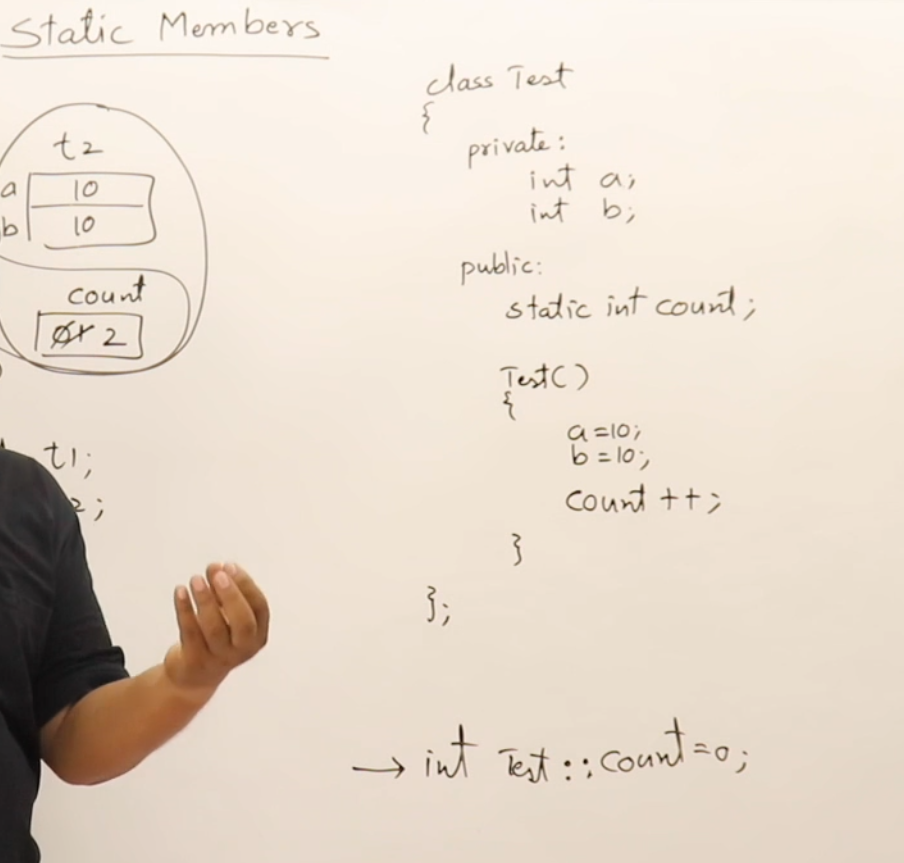 Static Members
t2
a 10
b 10
count
2
t1;
2;
class Test
{
private:
int a;
int b;
public:
static int count;
Test()
{
a=10;
b=10;
Count++;
}
};
→ int Test::Count=0;